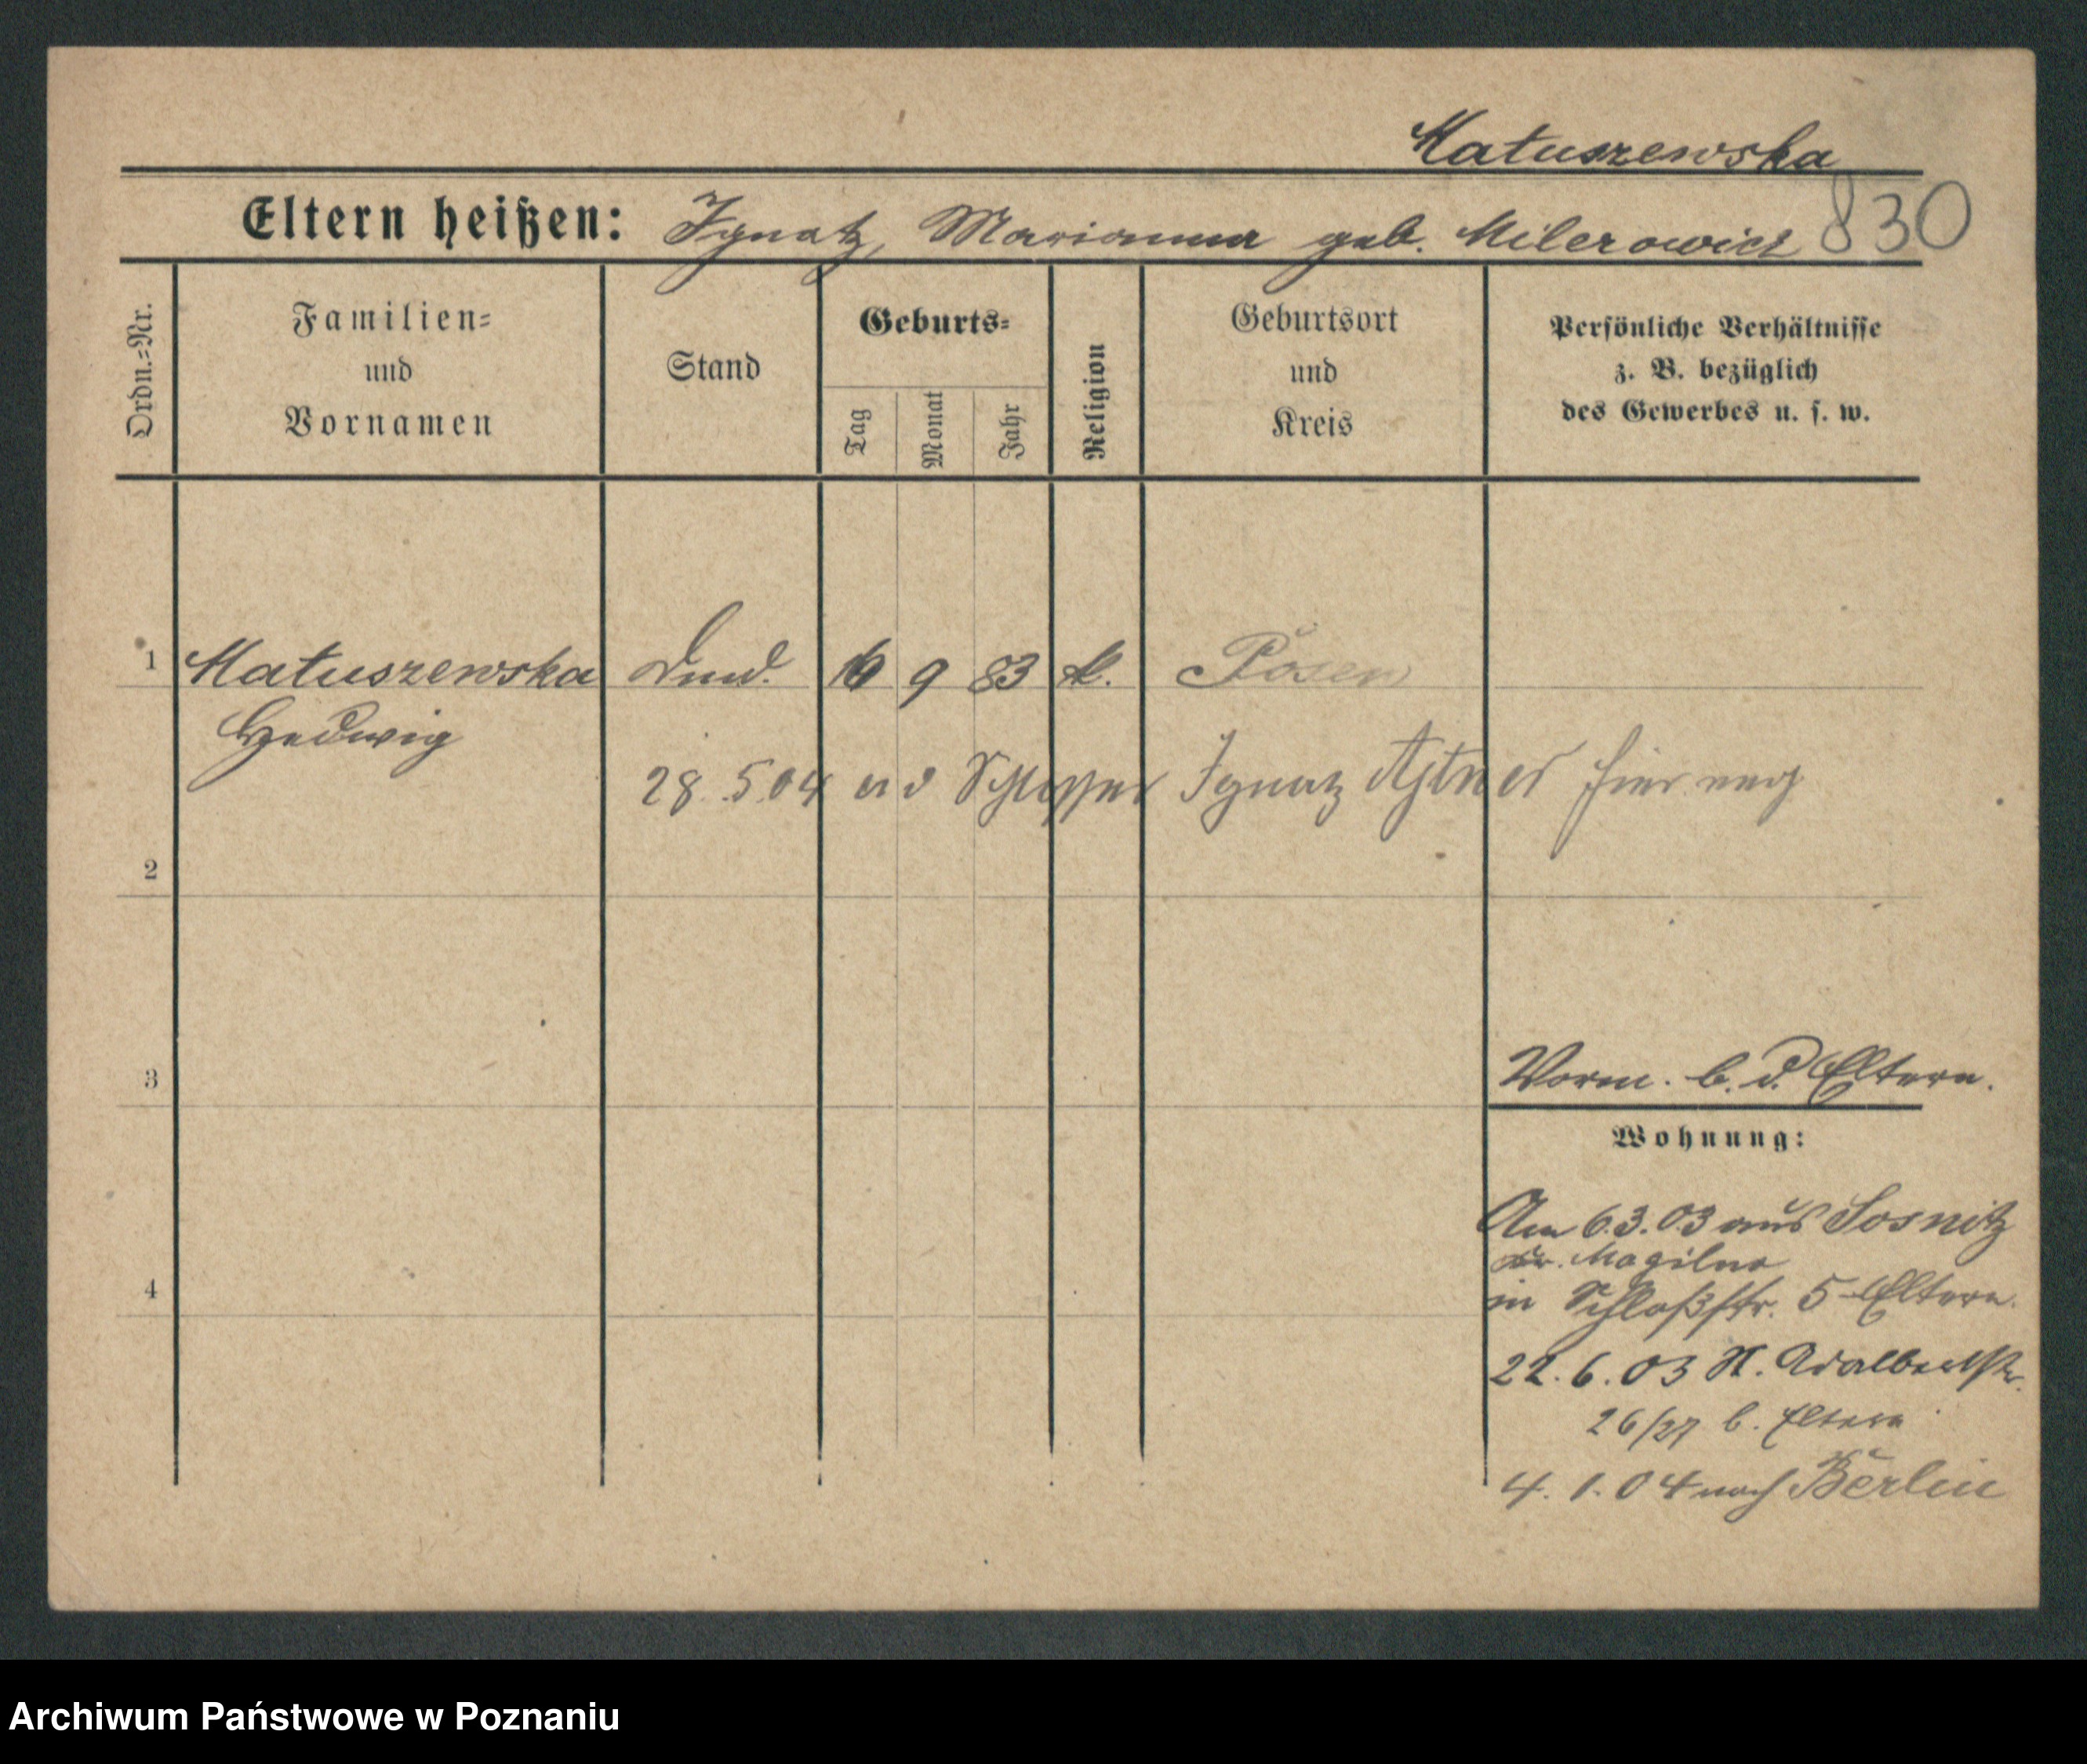 Matuszewska
Eltern heißen: Ignatz, Marianna geb. Milerowicz 830
Ordn.=Nr.
Familien=
und
Vornamen
Stand
Geburts=
Tag
Monat
Jahr
Religion
Geburtsort
und
Kreis
Persönliche Verhältnisse
z. B. bezüglich
des Gewerbes u. s. w.
1 Matuszewska 9 83 k. Posen
Hedwig
28.5.04 Schlosser Ignatz hier
2
3
Vorm. b. d. Eltern.
Wohnung:
Am 6.3.03 aus Sosnitz
Kr. Mogilno
4
in Schloßstr. 5 Eltern.
22.6.03 St. Adalbertstr.
26/27 b. Eltern
4.1.04 nach Berlin
Archiwum Państwowe w Poznaniu